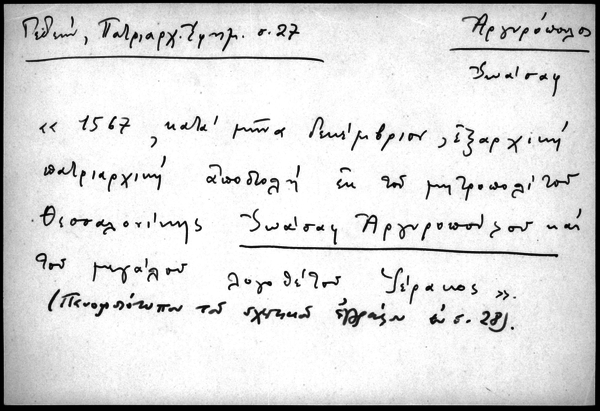 Γεδεών, Πατριαρχ. Ἐφημ. σ. 27
Ἀργυρόπουλος
Ἰωάσαφ
« 1567, κατά μῆνα Δεκέμβριον, ἐξαρχική
πατριαρχική ἀποστολή ἐκ τοῦ μητροπολίτου
Θεσσαλονίκης Ἰωάσαφ Ἀργυροπούλου καί
τοῦ μεγάλου λογοθέτου Ἱέρακος ».
(Πανομοιότυπον τοῦ σχετικοῦ ἐγγράφου ἐν σ. 28).